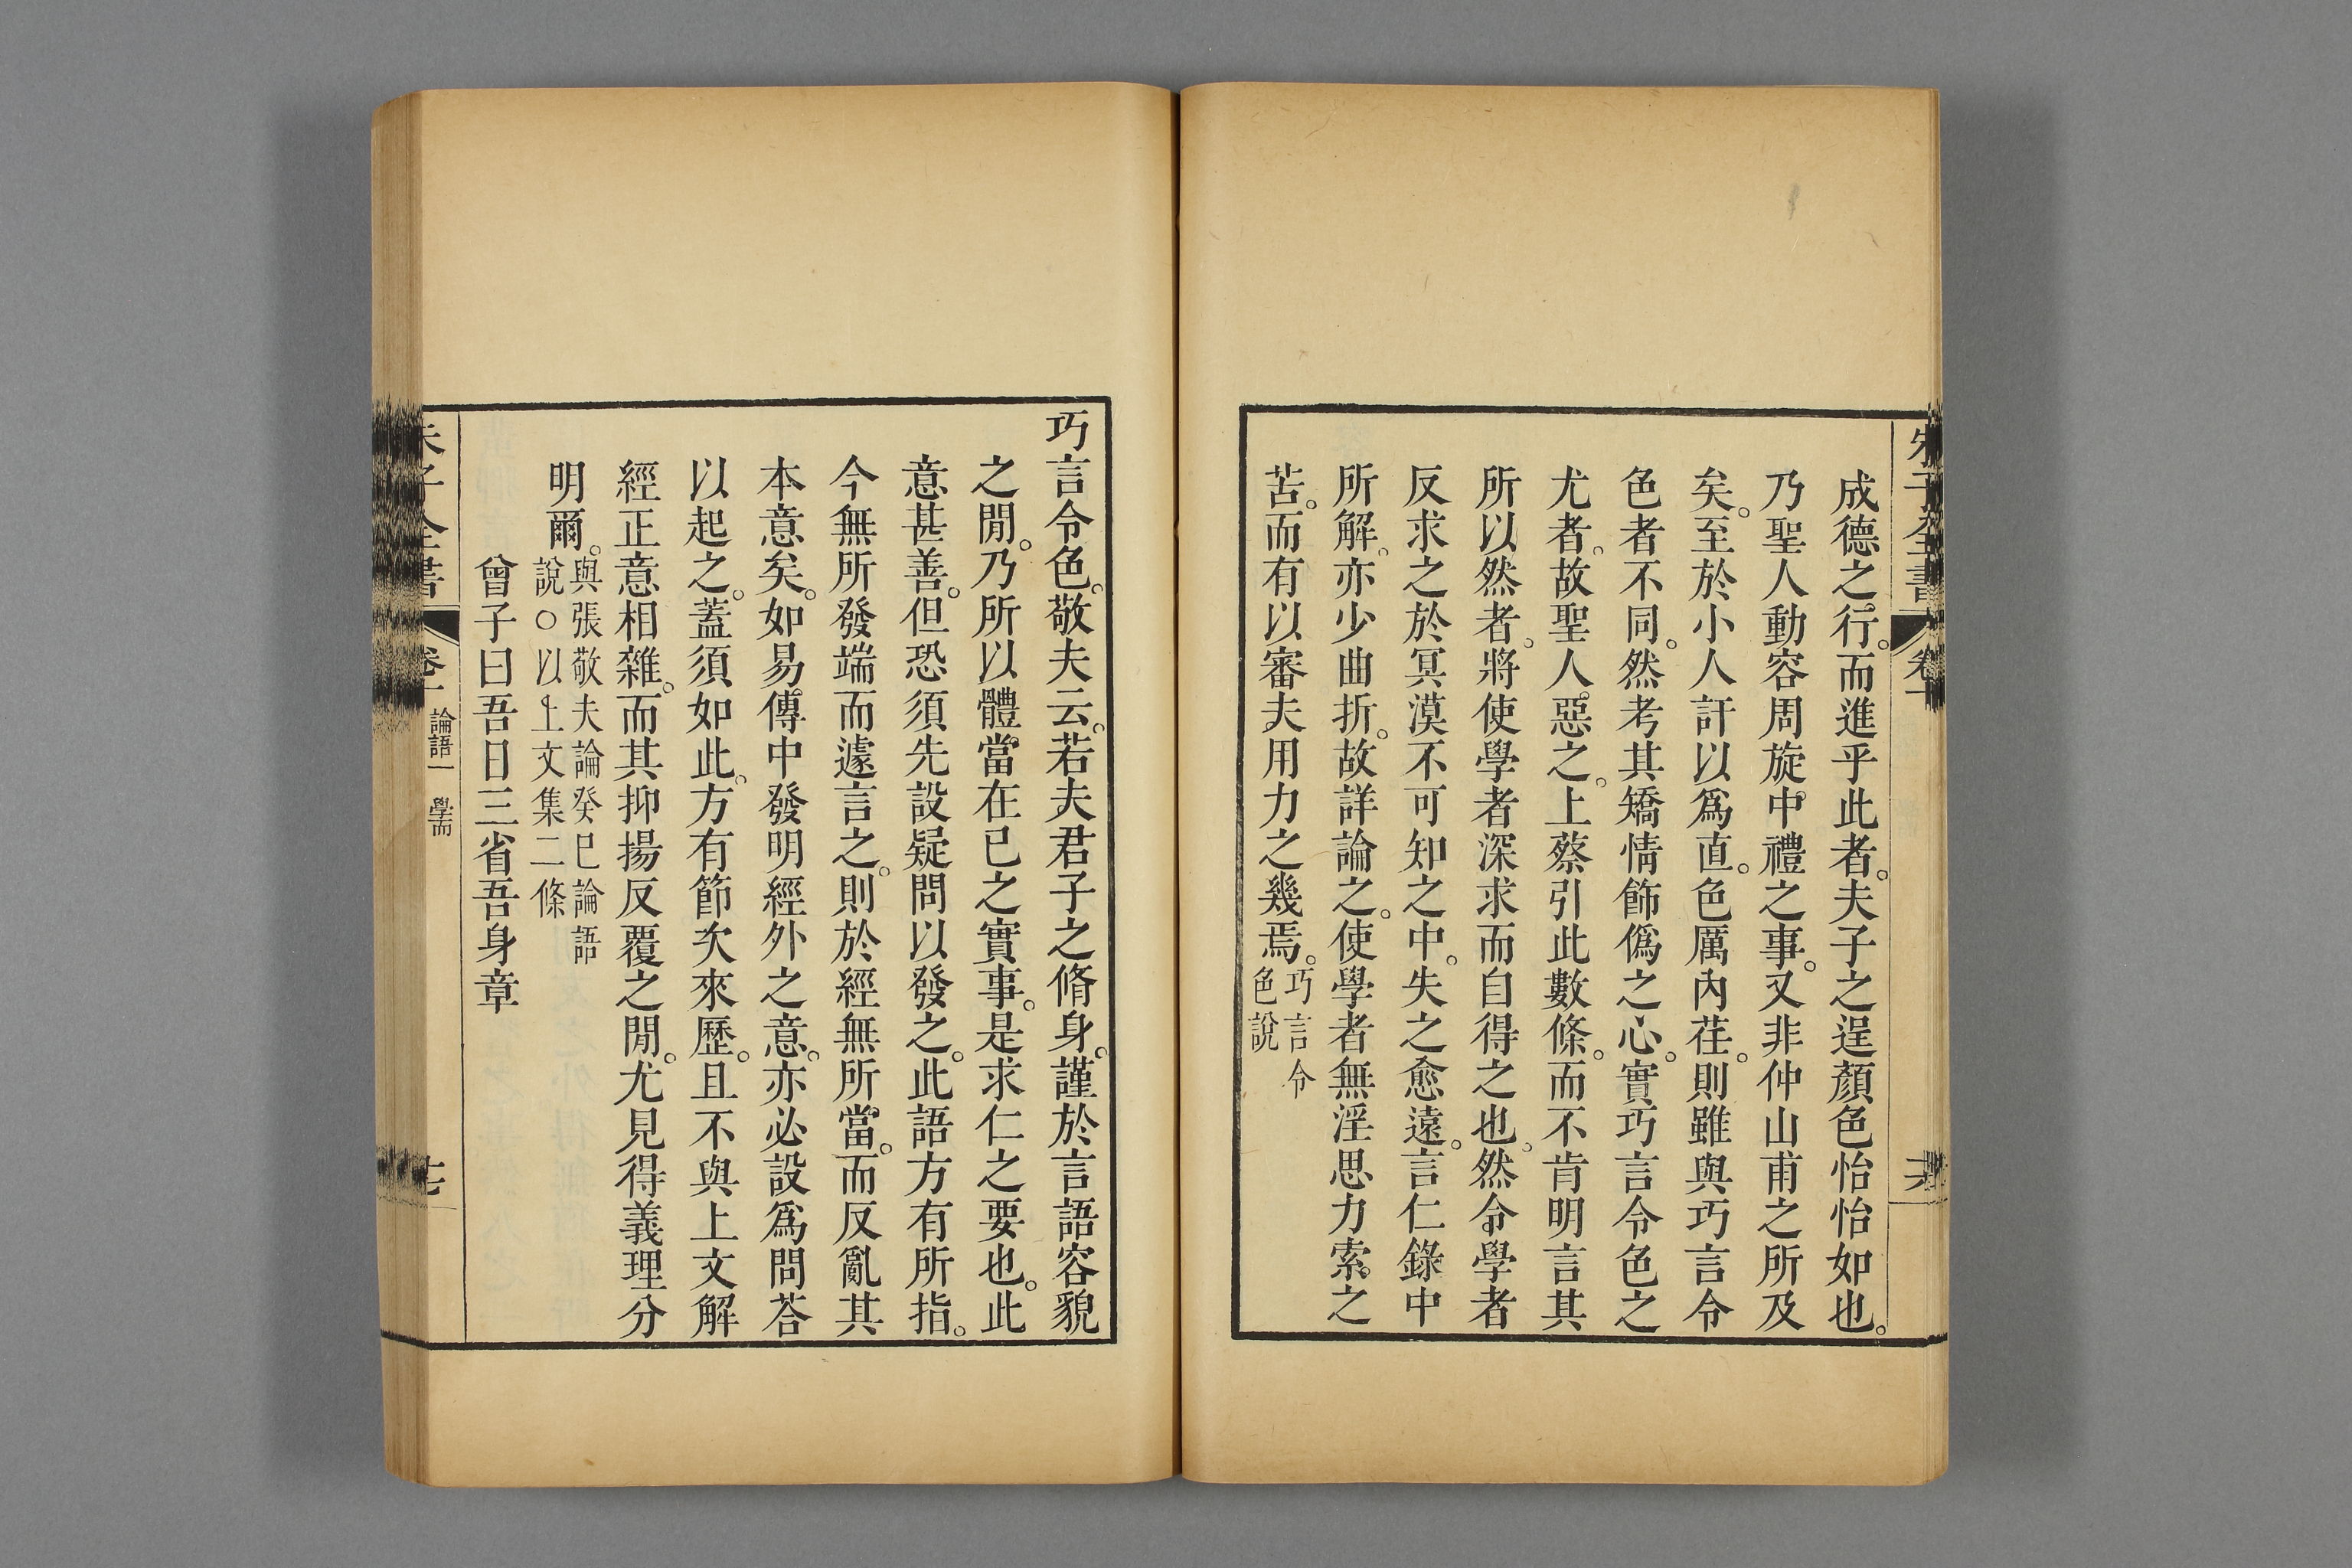 朱子全書 卷十
成德之行。而進乎此者。夫子之逞顏色怡怡如也。
乃聖人動容周旋中禮之事。又非仲山甫之所及
矣。至於小人訐以爲直。色厲內荏。則雖與巧言令
色者不同。然考其矯情飾僞之心。實巧言令色之
尤者。故聖人惡之。上蔡引此數條。而不肯明言其
所以然者。將使學者深求而自得之也。然令學者
反求之於冥漠不可知之中。失之愈遠。言仁錄中
所解。亦少曲折。故詳論之。使學者無淫思力索之
苦。而有以審夫用力之幾焉。巧言令
色說
巧言令色。敬夫云。若夫君子之脩身。謹於言語容貌
之閒。乃所以體當在已之實事。是求仁之要也。此
意甚善。但恐須先設疑問以發之。此語方有所指。
今無所發端而遽言之。則於經無所當。而反亂其
本意矣。如易傳中發明經外之意。亦必設爲問荅
以起之。蓋須如此。方有節次來歷。且不與上文解
經正意相雜。而其抑揚反覆之閒。尤見得義理分
明爾。與張敬夫論癸巳論語
說○以上文集二條
曾子曰吾日三省吾身章
朱子全書 卷十 論語一 學而 十七